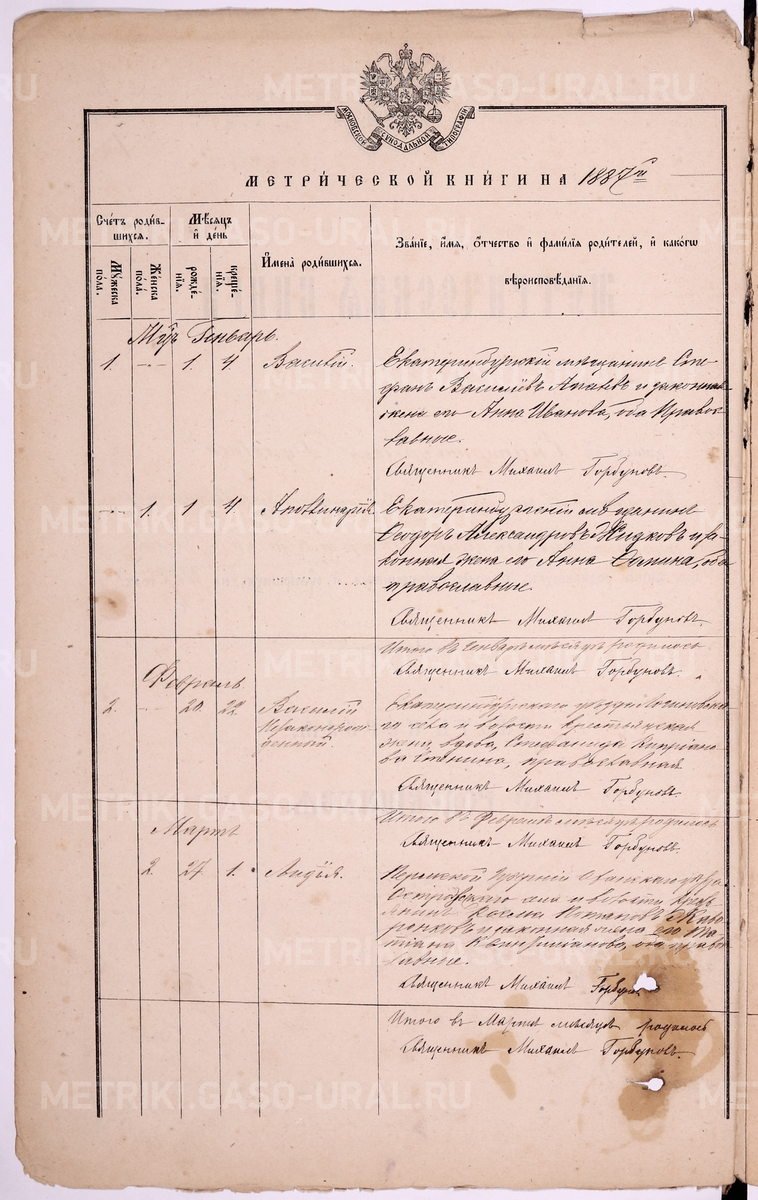 METRIKI.GASO-URAL.RU
МОСКОВСКОЙ СѴНОДАЛЬНОЙ ТИПОГРАФІИ
МЕТРИ́ЧЕСКОЙ КНИ́ГИ НА 1887й
Сче́тъ роди́в-
шихся.
Мꙋ́жеска
по́ла.
Же́нска
по́ла.
Мѣ́сяцъ
и҆ де́нь
рожде́-
нїѧ.
креще́-
нїѧ.
И҆мена̀ роди́вшихся.
Зва́нїе, и҆́мѧ, ѻ҆́тчество и҆ фамѝлїѧ роди́телей, и҆ како́гѡ
вѣроисповѣ́данїѧ.
Генварь.
1. — 1. 4 Василій.
Екатеринбургскій мѣщанинъ Сте-
фанъ Васильевъ и законная
жена его Анна Иванова, оба Правос-
лавные.
Священникъ Михаилъ Горбуновъ.
— 1. 1 4 Аполлинарія.
Екатеринбургскій мѣщанинъ
Ѳеодоръ Александровъ Жидковъ и за-
конная жена его Анна оба
православные.
Священникъ Михаилъ Горбуновъ.
Итого въ Генварѣ мѣсяцѣ родилось
Священникъ Михаилъ Горбуновъ.
Февраль.
2. — 20. 22. Василій
Незаконорож-
денный.
Екатеринбургскаго уѣзда
села и волости крестьянская
вдова, Стефанида Кипріано-
ва православная
Священникъ Михаилъ Горбуновъ.
Итого въ Февралѣ мѣсяцѣ родилось
Священникъ Михаилъ Горбуновъ.
Мартъ
2. 27 1. Лидія.
Пермской Губерніи Оханскаго уѣзда
села и волости кресть-
янинъ Косьма Потаповъ
и законная жена его Та-
тіана оба право-
славные.
Священникъ Михаилъ Горбуно
Итого въ Мартѣ мѣсяцѣ родилось
Священникъ Михаилъ Горбуновъ.